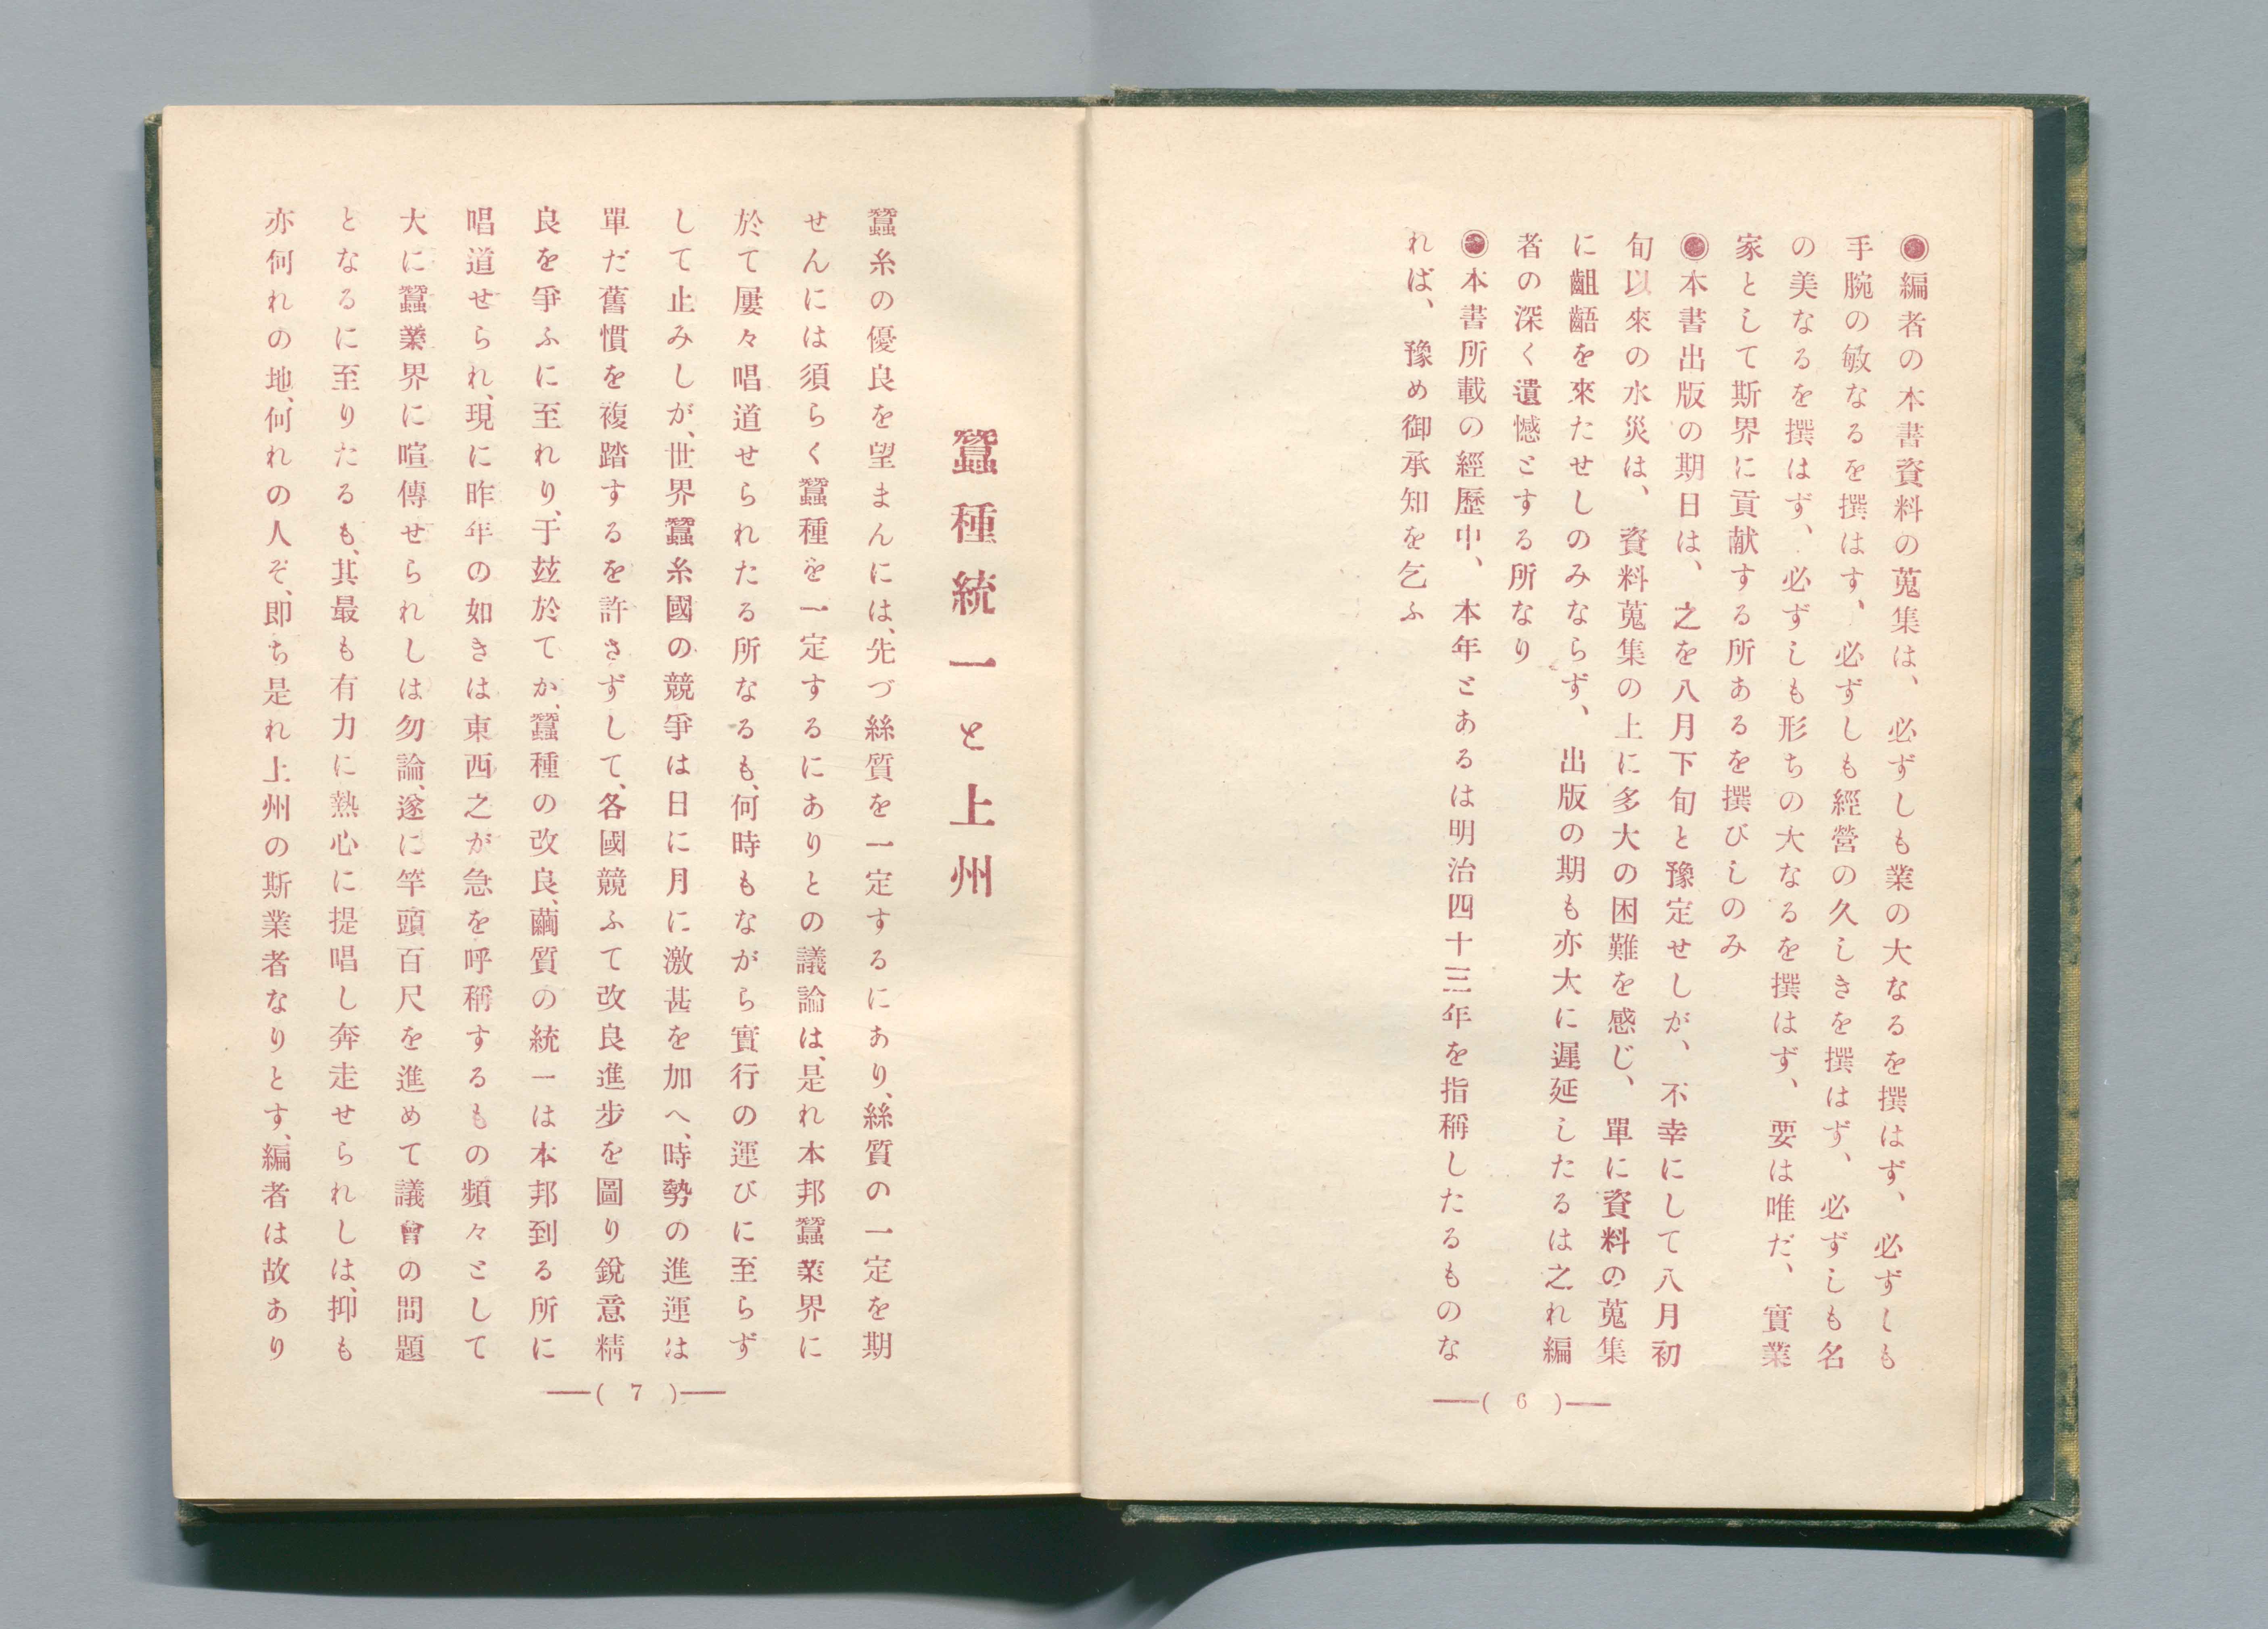 ◉編者の本書資料の蒐集は、必ずしも業の大なるを撰はず、必ずしも
手腕の敏なるを撰はす、必ずしも經營の久しきを撰はず、必ずしも名
の美なるを撰はず、必ずしも形ちの大なるを撰はず、要は唯だ、實業
家として斯界に貢献する所あるを撰びしのみ
◉本書出版の期日は、之を八月下旬と豫定せしが、不幸にして八月初
旬以來の水災は、資料蒐集の上に多大の困難を感じ、單に資料の蒐集
に齟齬を來たせしのみならず、出版の期も亦大に遲延したるは之れ編
者の深く遺憾とする所なり
◉本書所載の經歷中、本年とあるは明治四十三年を指稱したるものな
れば、豫め御承知を乞ふ
―( 6 )―
蠶種統一と上州
蠶糸の優良を望まんには、先づ絲質を一定するにあり、絲質の一定を期
せんには須らく蠶種を一定するにありとの議論は、是れ本邦蠶業界に
於て屢々唱道せられたる所なるも、何時もながら實行の運びに至らず
して止みしが、世界蠶糸國の競爭は日に月に激甚を加へ、時勢の進運は
單だ舊慣を複踏するを許さずして、各國競ふて改良進步を圖り銳意精
良を爭ふに至れり、于玆於てか、蠶種の改良、繭質の統一は本邦到る所に
唱道せられ、現に昨年の如きは東西之が急を呼稱するもの頻々として
大に蠶業界に喧傳せられしは勿論、遂に竿頭百尺を進めて議會の問題
となるに至りたるも、其最も有力に熱心に提唱し奔走せられしは、抑も
亦何れの地、何れの人ぞ、即ち是れ上州の斯業者なりとす、編者は故あり
―( 7 )―